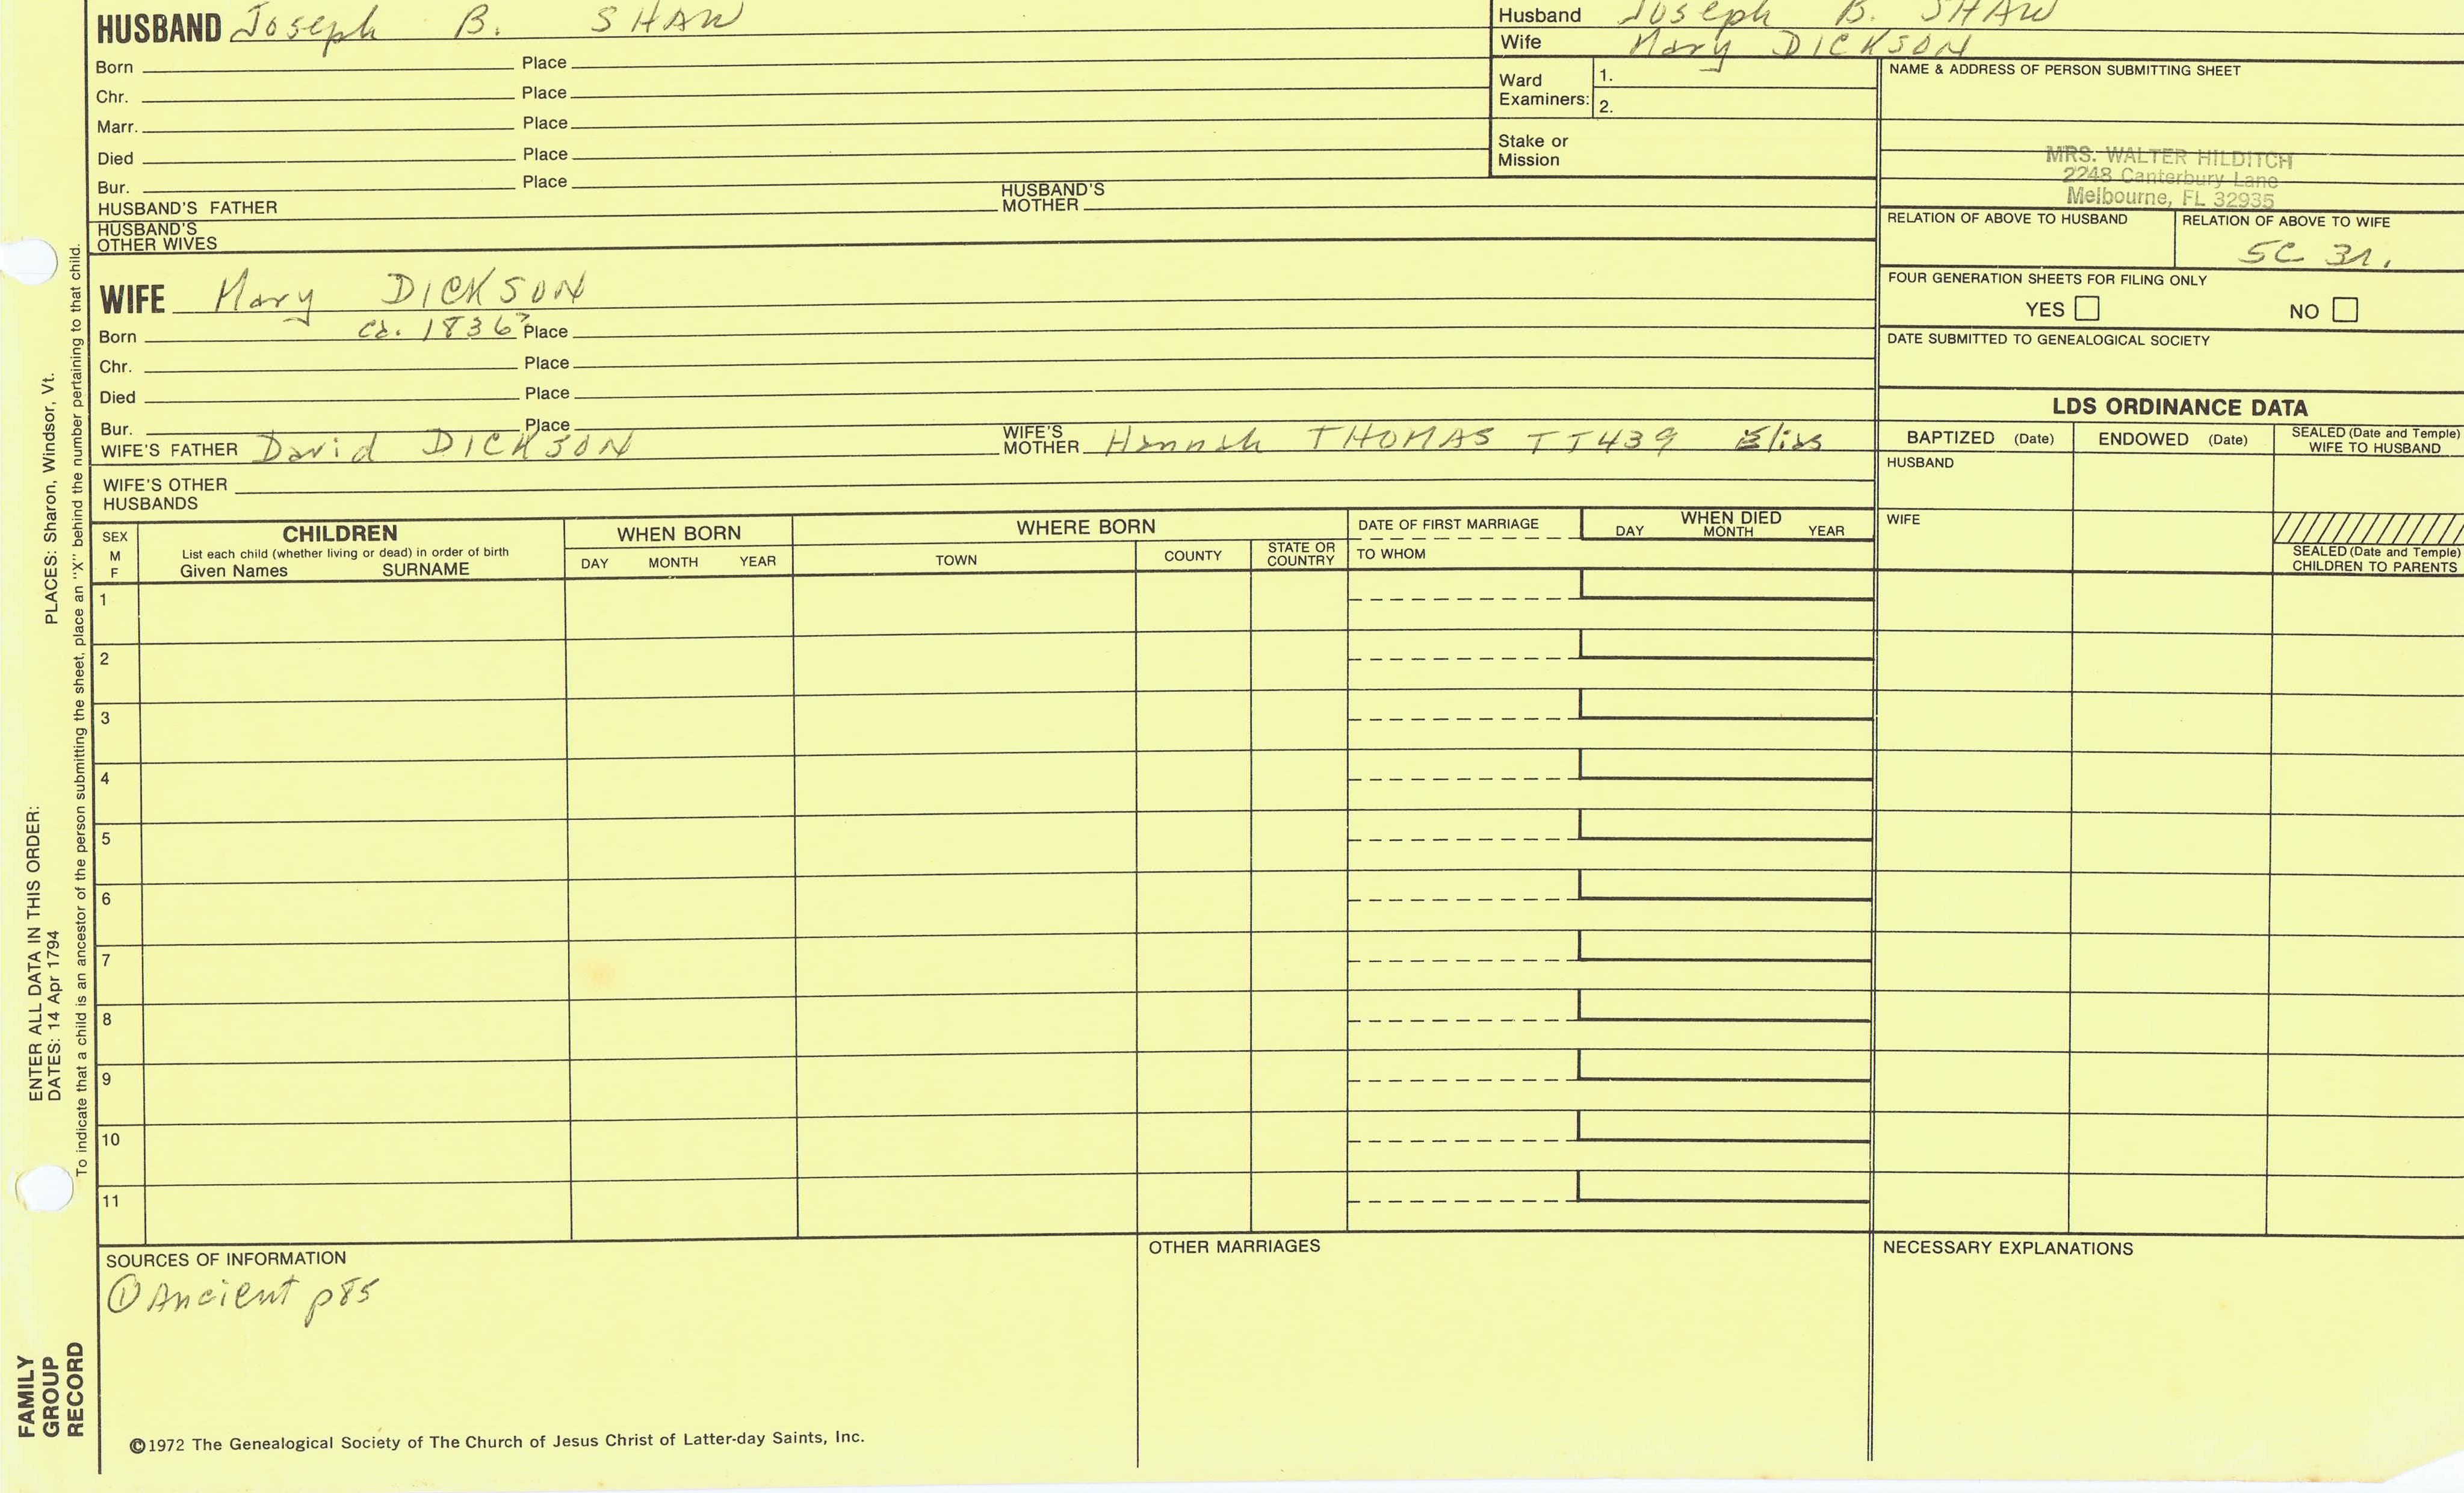 HUSBAND Joseph B. SHAW
Born Place
Chr. Place
Marr. Place
Died Place
Bur. Place
HUSBAND'S FATHER HUSBAND'S MOTHER
HUSBAND'S OTHER WIVES
Husband Joseph B. SHAW
Wife Mary DICKSON
Ward Examiners: 1.
2.
Stake or Mission
NAME & ADDRESS OF PERSON SUBMITTING SHEET
MRS. WALTER HILDITCH
2248 Canterbury Lane
Melbourne, FL 32935
RELATION OF ABOVE TO HUSBAND RELATION OF ABOVE TO WIFE
5C 3r.
FOUR GENERATION SHEETS FOR FILING ONLY
YES NO
DATE SUBMITTED TO GENEALOGICAL SOCIETY
WIFE Mary DICKSON
Born ca. 1836? Place
Chr. Place
Died Place
Bur. Place
WIFE'S FATHER David DICKSON WIFE'S MOTHER Hannah THOMAS TT439 Elias
WIFE'S OTHER HUSBANDS
LDS ORDINANCE DATA
BAPTIZED (Date) ENDOWED (Date) SEALED (Date and Temple) WIFE TO HUSBAND
HUSBAND
WIFE
SEALED (Date and Temple) CHILDREN TO PARENTS
SEX M F
CHILDREN
List each child (whether living or dead) in order of birth
Given Names SURNAME
WHEN BORN
DAY MONTH YEAR
WHERE BORN
TOWN COUNTY STATE OR COUNTRY
DATE OF FIRST MARRIAGE
TO WHOM
WHEN DIED
DAY MONTH YEAR
1
2
3
4
5
6
7
8
9
10
11
SOURCES OF INFORMATION
① Ancient p85
OTHER MARRIAGES
NECESSARY EXPLANATIONS
©1972 The Genealogical Society of The Church of Jesus Christ of Latter-day Saints, Inc.
FAMILY GROUP RECORD
ENTER ALL DATA IN THIS ORDER:
DATES: 14 Apr 1794 PLACES: Sharon, Windsor, Vt.
To indicate that a child is an ancestor of the person submitting the sheet, place an "X" behind the number pertaining to that child.